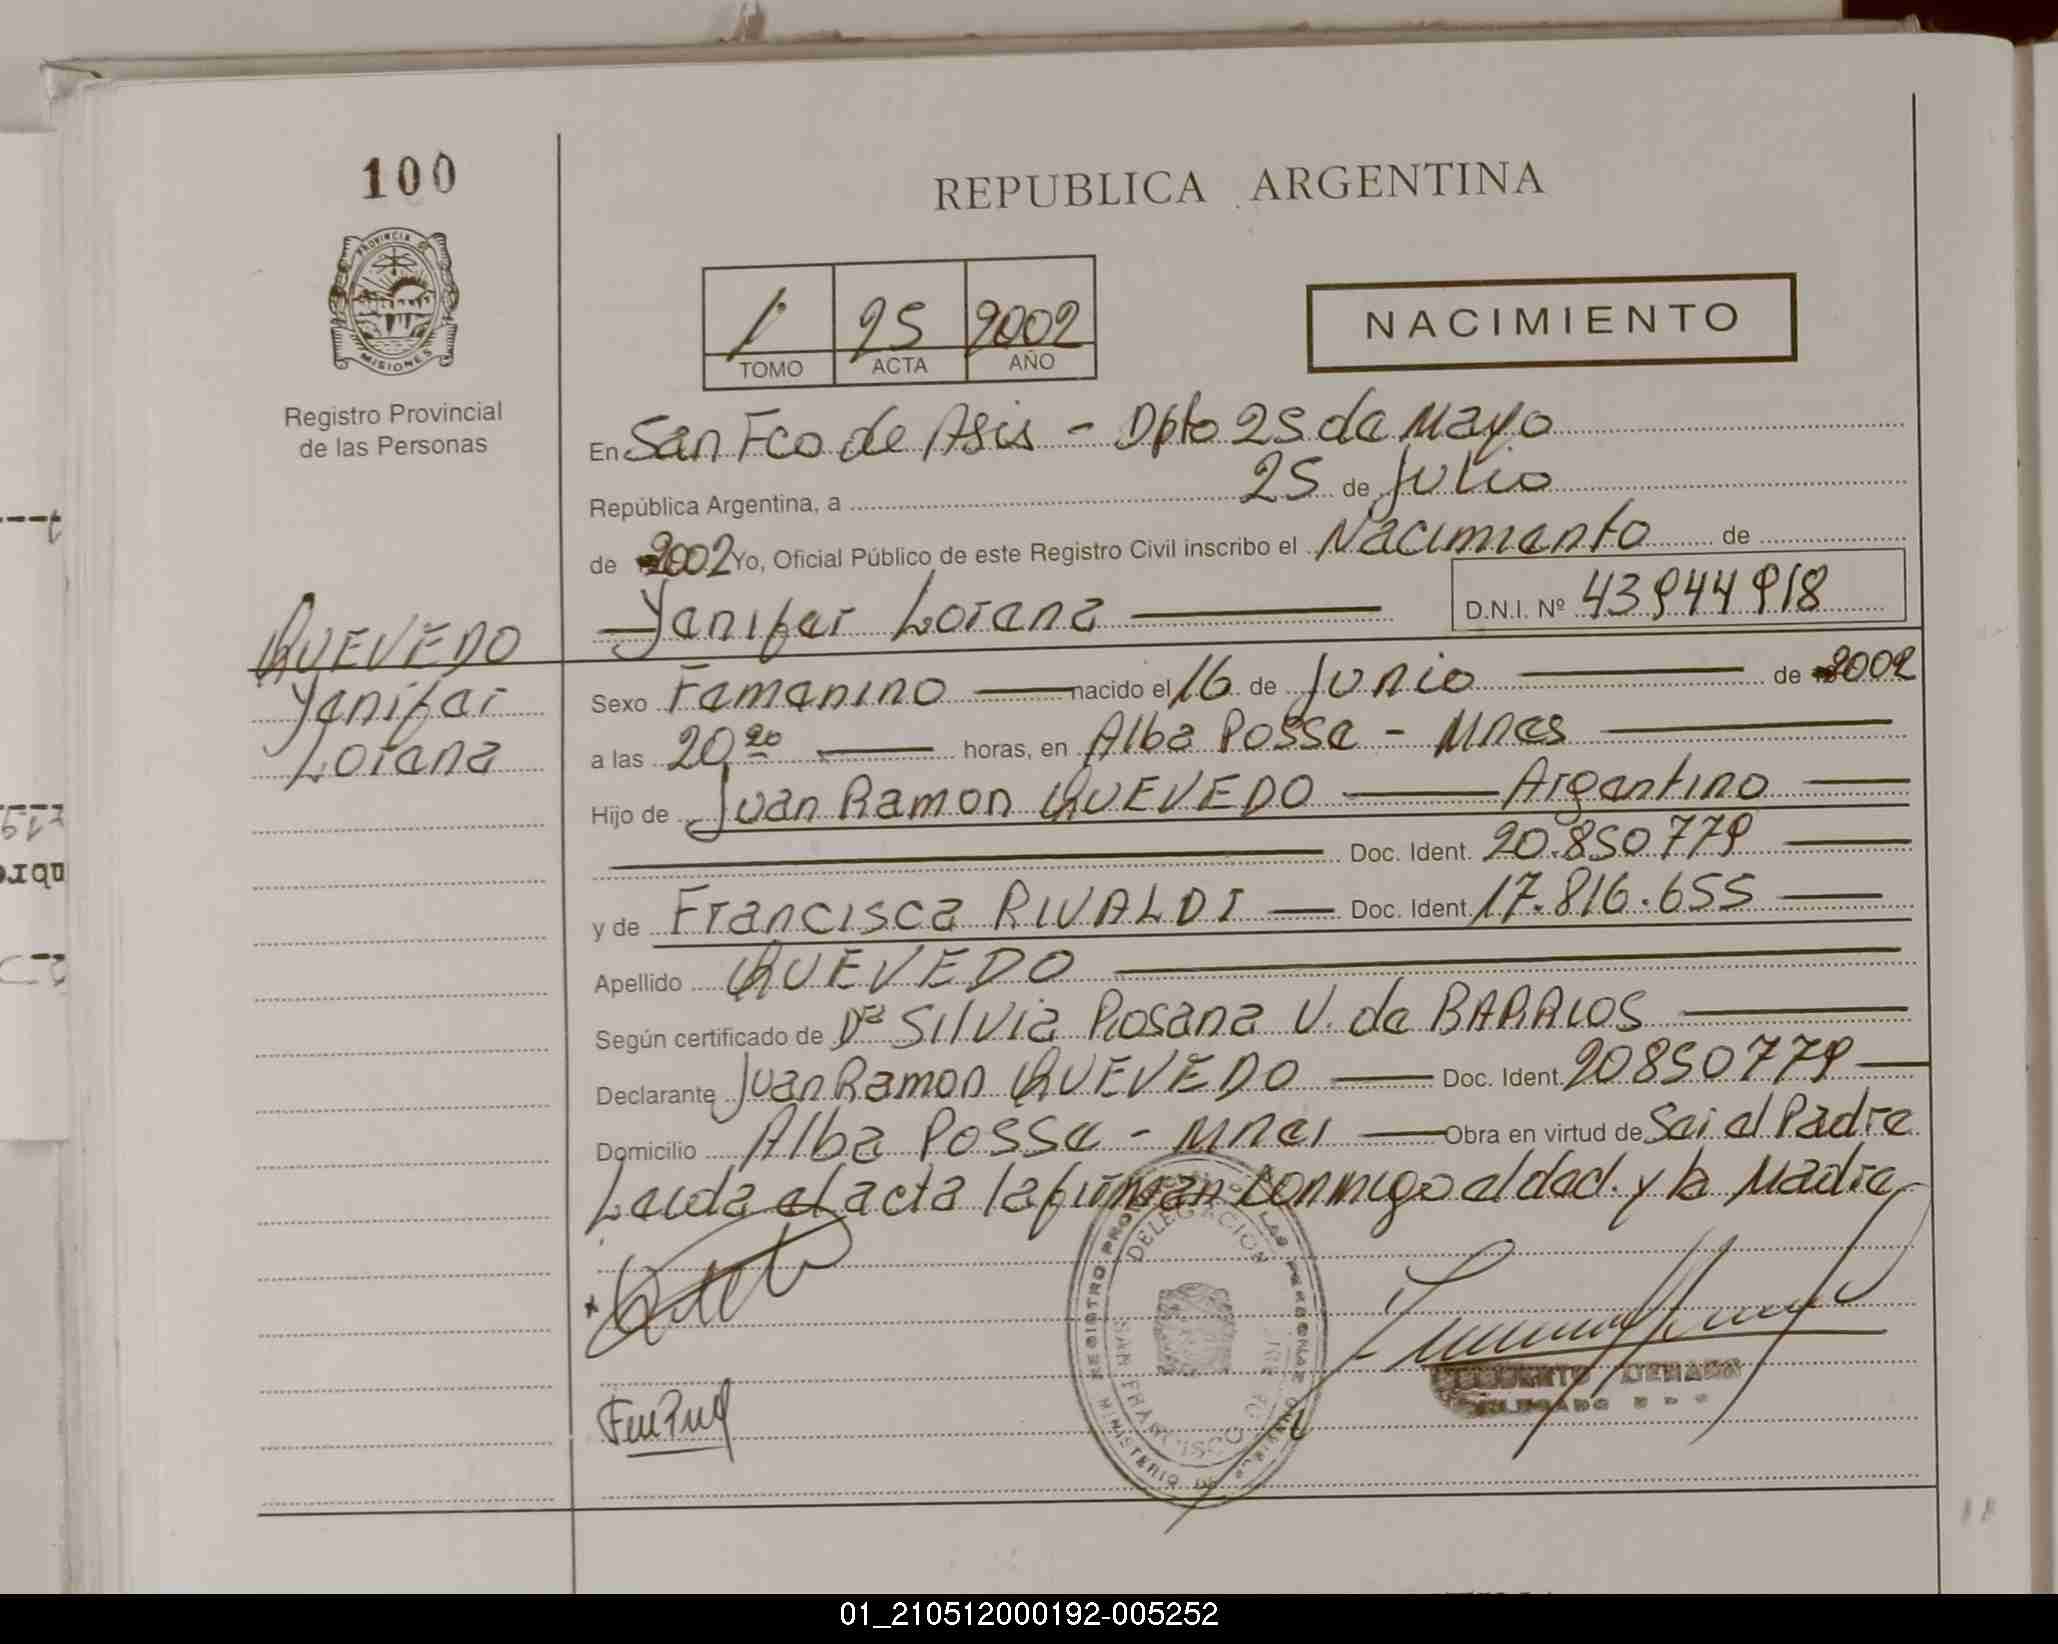 100
REPUBLICA ARGENTINA
PROVINCIA DE
MISIONES
Registro Provincial
de las Personas
1 25 2002
TOMO ACTA AÑO
NACIMIENTO
En San Fco de Asis - Dpto 25 de Mayo
República Argentina, a 25 de Julio
de 2002 Yo, Oficial Público de este Registro Civil inscribo el Nacimiento de
Yenifer Lorena D.N.I. Nº 43944918
QUEVEDO
Yenifer
Lorena
Sexo Femenino nacido el 16 de Junio de 2002
a las 20 20 horas, en Alba Posse - Mnes
Hijo de Juan Ramon QUEVEDO Argentino
Doc. Ident. 20.850779
y de Francisca RIVALDI Doc. Ident. 17.816.655
Apellido QUEVEDO
Según certificado de Dª Silvia Rosana V. de BARRIOS
Declarante Juan Ramon QUEVEDO Doc. Ident. 20850779
Domicilio Alba Posse - Mnes Obra en virtud de Ser el Padre
Leida el acta la firman conmigo el decl. y la Madre
REGISTRO PROVINCIAL DE LAS PERSONAS
DELEGACION
SAN FRANCISCO DE ASIS
MINISTERIO DE GOBIERNO
01_210512000192-005252